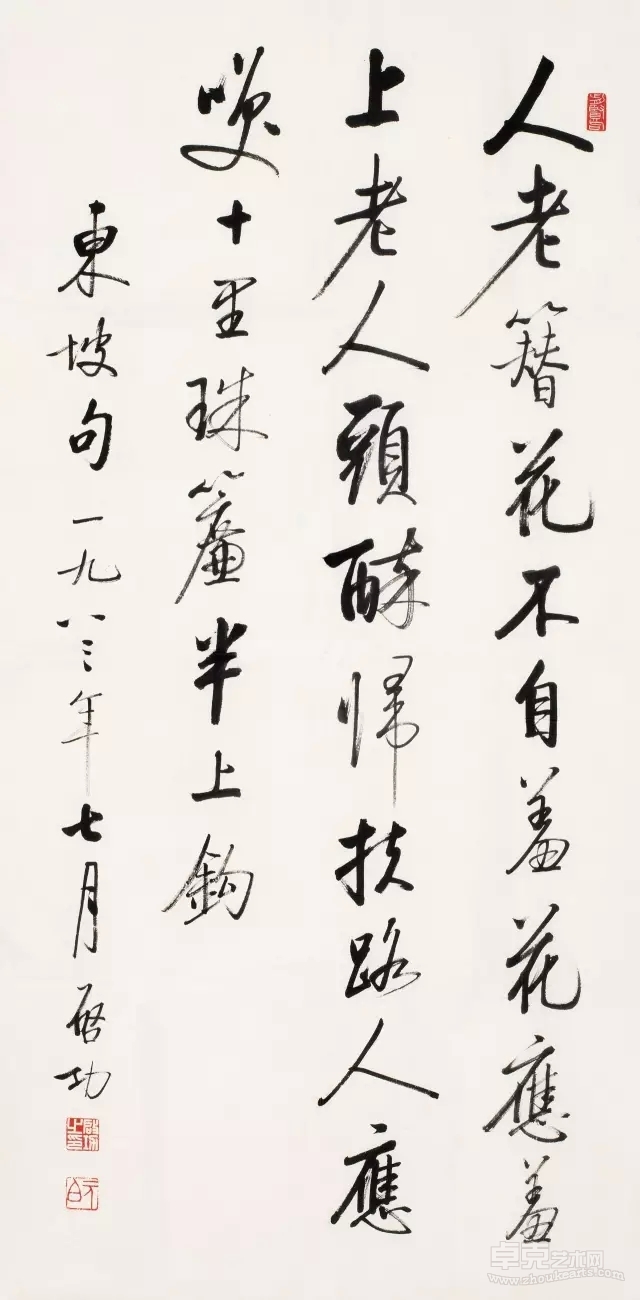 人老簪花不自羞花應羞
上老人頭醉歸扶路人應
笑十里珠簾半上鉤
東坡句一九八三年七月啟功
卓克艺术网
www.zhuokearts.com